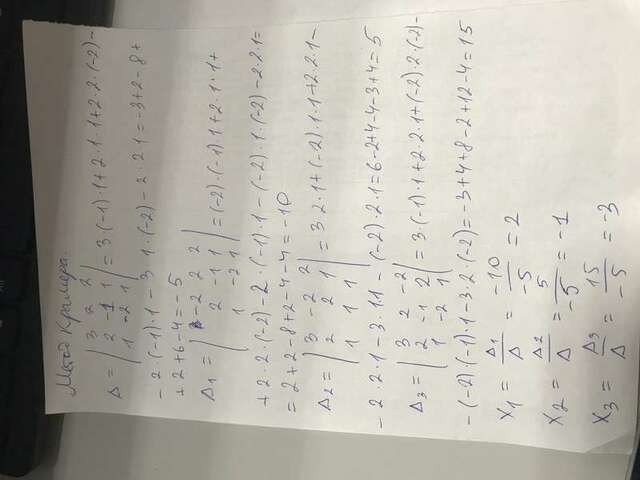 Метод Крамера.
Δ = | 3 2 2 |
| 2 -1 1 | = 3·(-1)·1+2·1·1+2·2·(-2)-
| 1 -2 1 |
- 2·(-1)·1 - 3·1·(-2) - 2·2·1 = -3+2-8+
+ 2+6-4 = -5
Δ1 = | -2 2 2 |
| 2 -1 1 | = (-2)·(-1)·1+2·1·1+
| 1 -2 1 |
+ 2·2·(-2) - 2·(-1)·1 - (-2)·1·(-2) - 2·2·1 =
= 2+2-8+2-4-4 = -10
Δ2 = | 3 -2 2 |
| 2 2 1 | = 3·2·1+(-2)·1·1+2·2·1-
| 1 1 1 |
- 2·2·1 - 3·1·1 - (-2)·2·1 = 6-2+4-4-3+4 = 5
Δ3 = | 3 2 -2 |
| 2 -1 2 | = 3·(-1)·1+2·2·1+(-2)·2·(-2)-
| 1 -2 1 |
- (-2)·(-1)·1 - 3·2·(-2) = -3+4+8-2+12-4 = 15
X1 = Δ1/Δ = -10/-5 = 2
X2 = Δ2/Δ = 5/-5 = -1
X3 = Δ3/Δ = 15/-5 = -3